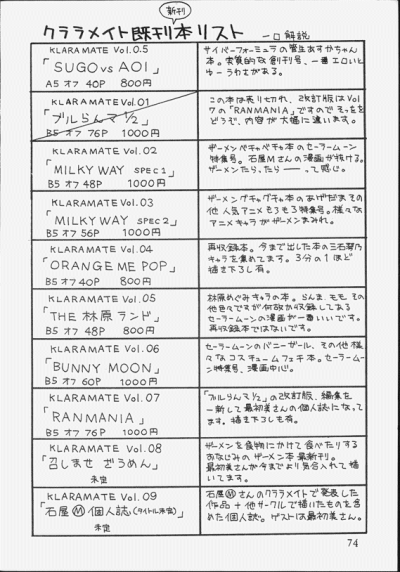 新刊
クララメイト既刊本リスト 一口解説
KLARAMATE Vol.0.5
「SUGO vs AOI」
A5 オフ 40P 800円
サイバーフォーミュラの管生あすかちゃん
本。実質的な創刊号、一番エロいと
ゆーうわさがある。
KLARAMATE Vol.01
「ブルらんマ1/2」
B5 オフ 76P 1000円
この本は売り切れ、改訂版はVol
7の「RANMANIA」ですのでそっちを
どうぞ、内容が大幅に違います。
KLARAMATE Vol.02
「MILKY WAY SPEC1」
B5 オフ 48P 1000円
ザーメンベチャベチャ本のセーラームーン
特集号。石屋Mさんの漫画が抜ける。
ザーメンたら、たら――って感じ。
KLARAMATE Vol.03
「MILKY WAY SPEC2」
B5 オフ 56P 1000円
ザーメングチャグチャ本のあげだまその
他人気アニメもろもろ特集号。様々な
アニメキャラがザーメンまみれ。
KLARAMATE Vol.04
「ORANGE ME POP」
B5 オフ 40P 800円
再収録本。今まで出した本の三石琴乃
キャラを集めてます。3分の1ほど
描き下ろし有。
KLARAMATE Vol.05
「THE 林原ランド」
B5 オフ 48P 800円
林原めぐみキャラの本。らんま、ももその
他色々ですが何故か収録してある
セーラームーンの漫画が一番いいです。
再収録本ではないです。
KLARAMATE Vol.06
「BUNNY MOON」
B5 オフ 60P 1000円
セーラームーンのバニーガール、その他様
々なコスチュームフェチ本。セーラームー
ン特集号、漫画中心。
KLARAMATE Vol.07
「RANMANIA」
B5 オフ 76P 1000円
「ブルらんマ1/2」の改訂版、編集を
一新して最初美さんの個人誌になって
ます。描き下ろしも有。
KLARAMATE Vol.08
「召しませ ざうめん」
未定
ザーメンを食物にかけて食べたりする
おなじみのザーメン本最新刊。
最初美さんが今までより気合入れて描
いてます。
KLARAMATE Vol.09
「石屋Ⓜ個人誌(タイトル未定)」
未定
石屋Ⓜさんのクララメイトで発表した
作品+他サークルで描いたものを含
めた個人誌。ゲストは最初美さん。
74